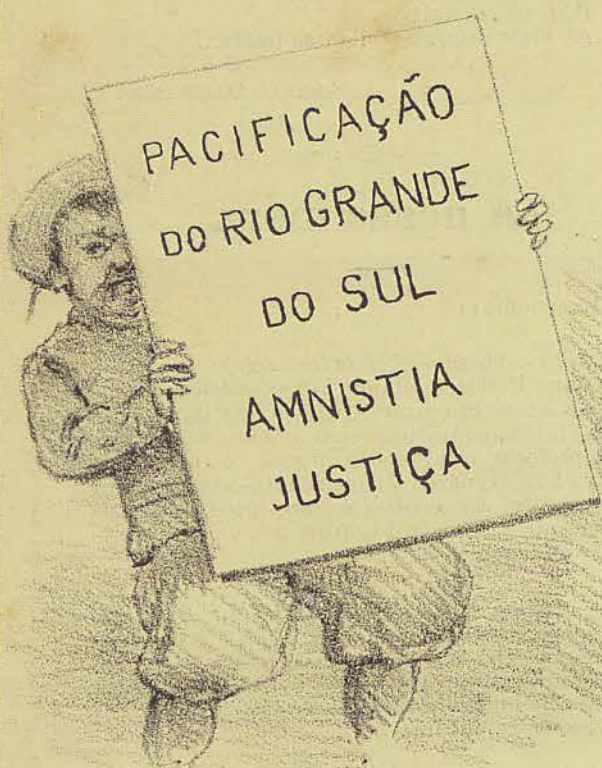 PACIFICAÇÃO
DO RIO GRANDE
DO SUL
AMNISTIA
JUSTIÇA